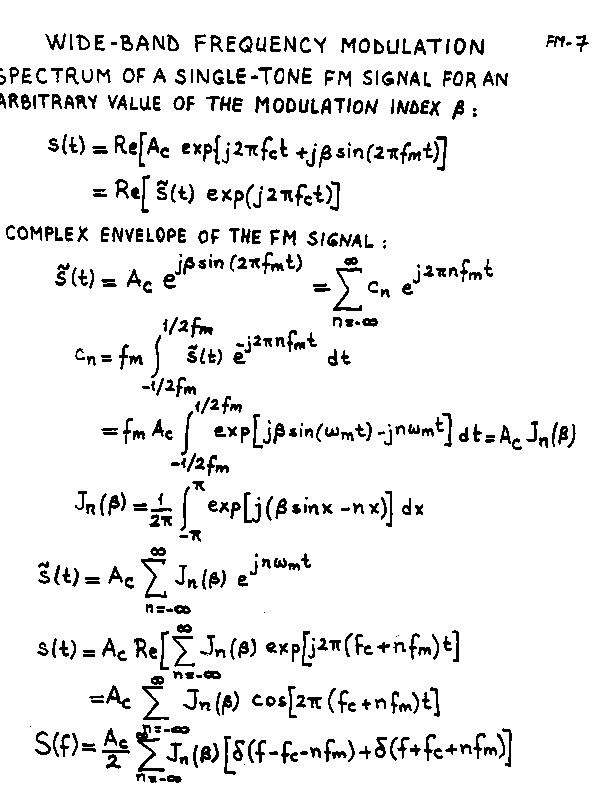 WIDE-BAND FREQUENCY MODULATION FM-7
SPECTRUM OF A SINGLE-TONE FM SIGNAL FOR AN
ARBITRARY VALUE OF THE MODULATION INDEX β :
s(t) = Re[Ac exp{j2πfct + jβ sin(2πfmt)]
= Re[ s̃(t) exp(j2πfct)]
COMPLEX ENVELOPE OF THE FM SIGNAL :
s̃(t) = Ac e^{jβ sin (2πfmt)} = ∑_{n=-∞}^{∞} cn e^{j2πnfmt}
cn = fm ∫_{-1/2fm}^{1/2fm} s̃(t) e^{-j2πnfmt} dt
= fm Ac ∫_{-1/2fm}^{1/2fm} exp[jβ sin(ωmt) - jnωmt] dt = Ac Jn(β)
Jn(β) = 1/2π ∫_{-π}^{π} exp[j(β sinx - nx)] dx
s̃(t) = Ac ∑_{n=-∞}^{∞} Jn(β) e^{jnωmt}
s(t) = Ac Re[∑_{n=-∞}^{∞} Jn(β) exp[j2π(fc+nfm)t]
= Ac ∑_{n=-∞}^{∞} Jn(β) cos[2π(fc+nfm)t]
S(f) = Ac/2 ∑_{n=-∞}^{∞} Jn(β)[δ(f-fc-nfm)+δ(f+fc+nfm)]